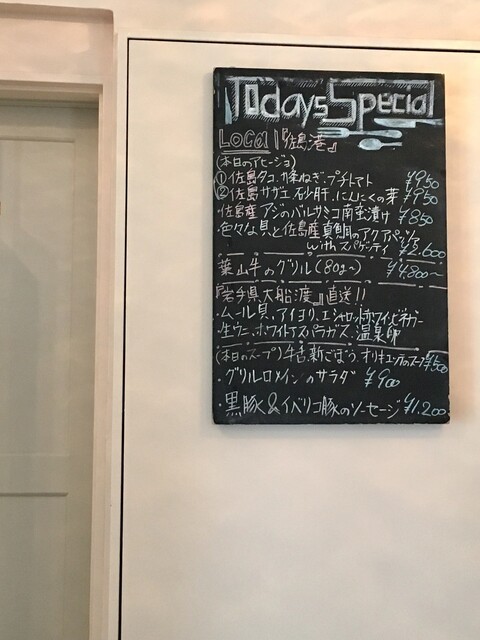 Todays Special
Local『佐島港』
(本日のアヒージョ)
①佐島タコ.九条ねぎ.プチトマト ¥950
②佐島サザエ.砂肝.にんにくの芽 ¥950
・佐島産アジのバルサミコ南蛮漬け ¥850
・色々な貝と佐島産真鯛のアクアパッツァ
with スパゲティ ¥2.600
葉山牛のグリル(80g〜) ¥4.800〜
『岩手県大船渡』直送!!
・ムール貝、アイヨリ、エシャロットホワイトビネガー
・生ウニ、ホワイトアスパラガス、温泉卵
(本日のスープ) 新ごぼう、
・グリルロメインのサラダ ¥900
・黒豚&イベリコ豚のソーセージ ¥1.200